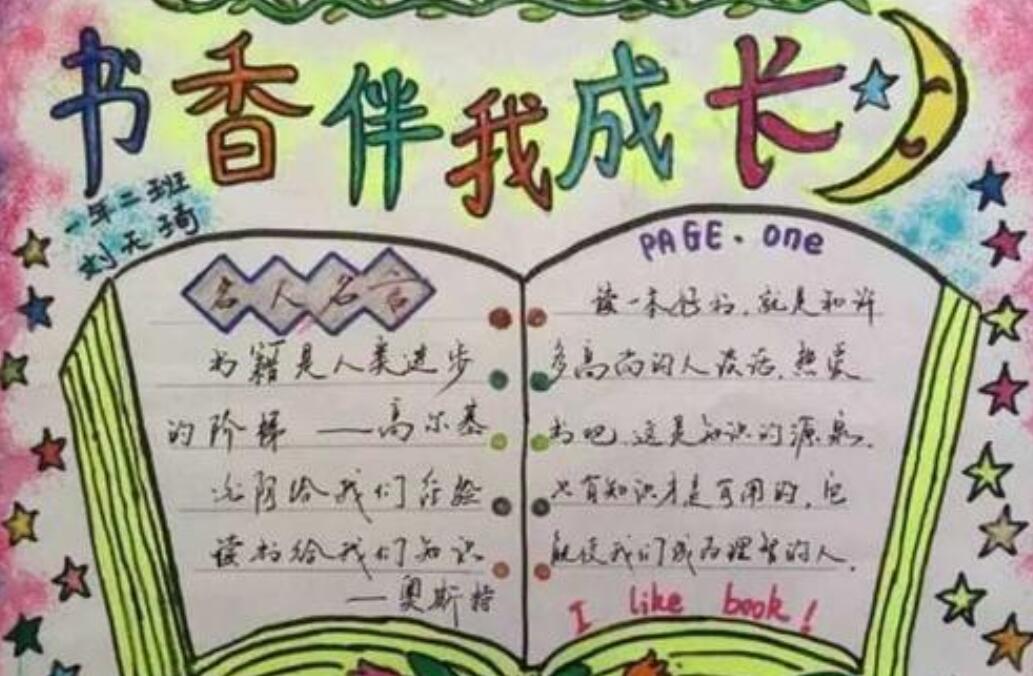 书香伴我成长
一年二班
刘天琦
名人名言
书籍是人类进步
的阶梯 ——高尔基
给我们经验
读书给我们知识
—奥斯特
PAGE. one
读一本好的,就是和许
多高尚的人谈话.热爱
书吧.这是知识的源泉.
只有知识才是可用的,它
能使我们成为理智的人.
I like book!